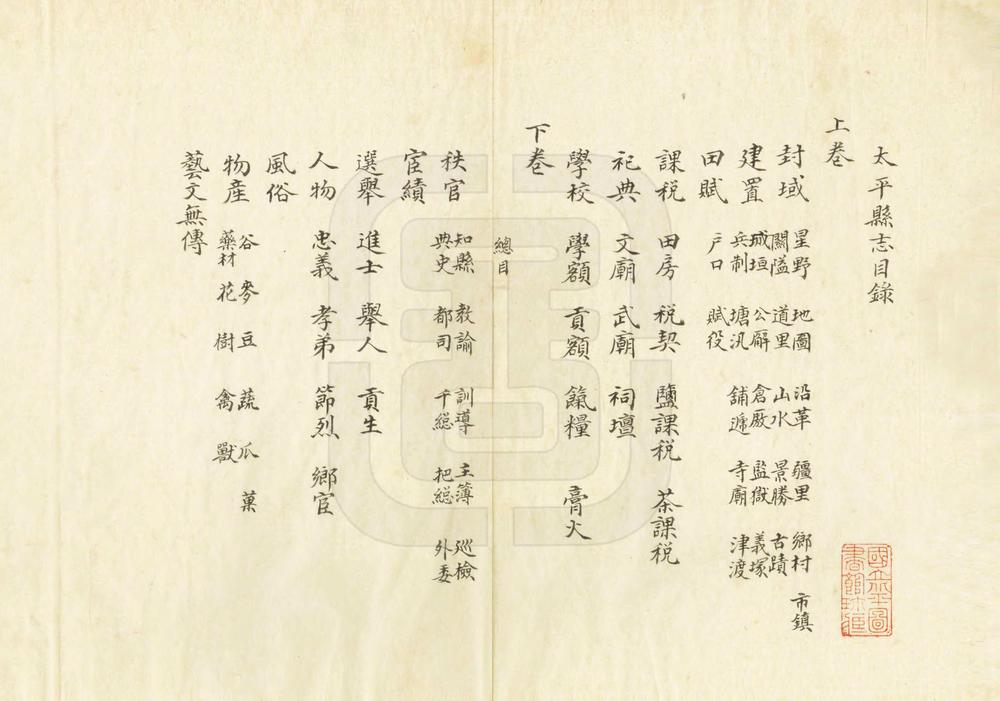 太平縣志目錄
上卷
封域 星野 地圖 沿革 疆里 鄉村 市鎮
關隘 道里 山水 景勝 古蹟
建置 城垣 公廨 倉廒 監獄 義塚
兵制 塘汛 舖遞 寺廟 津渡
田賦 戶口 賦役
課税 田房 税契 鹽課税 茶課税
祀典 文廟 武廟 祠壇
學校 學額 貢額 餼糧 膏火
下卷
總目
秩官 知縣 教諭 訓導 主簿 巡檢
典史 都司 千総 把総 外委
宦績
選舉 進士 舉人 貢生
人物 忠義 孝弟 節烈 鄉宦
風俗
物産 谷 麥 豆 蔬 瓜 菓
藥材 花 樹 禽 獸
藝文無傳
國立北平圖書館珍藏